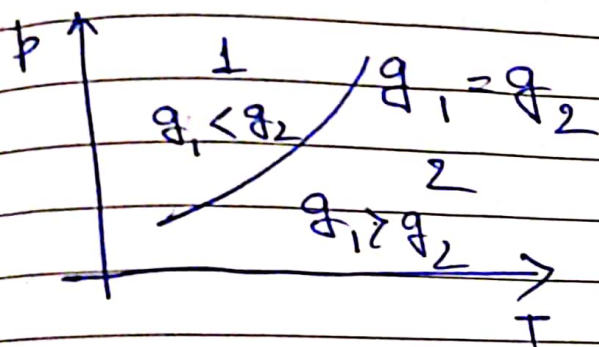 p
1
g₁ = g₂
g₁ < g₂
2
g₁ > g₂
T